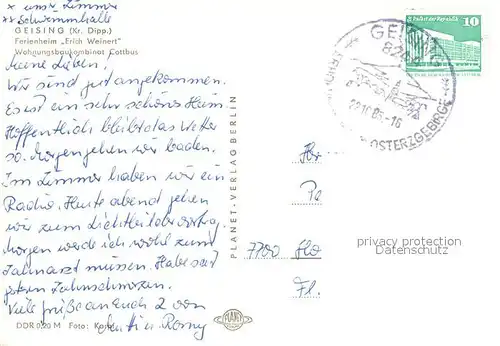 x unser Zimmer
xx Schwimmhalle
GEISING (Kr. Dipp.)
Ferienheim „Erich Weinert"
Wohnungsbaukombinat Cottbus
Meine Lieben!
Wir sind gut angekommen.
Es ist ein sehr schönes Heim
Hoffentlich bleibt das Wetter
so. Morgen gehen wir baden.
Im Zimmer haben wir ein
Radio. Heute abend gehen
wir zum Lichtbildervortrag.
Morgen werde ich wohl zum
Zahnarzt müssen. Habe seit
gestern Zahnschmerzen.
Viele Grüße an Euch 2 von
Romy
DDR 0,20 M Foto: Kampf
PLANET-VERLAG BERLIN
PLANET
Palast der Republik
10
GEISING
OSTERZGEBIRGE
7700
privacy protection
Datenschutz